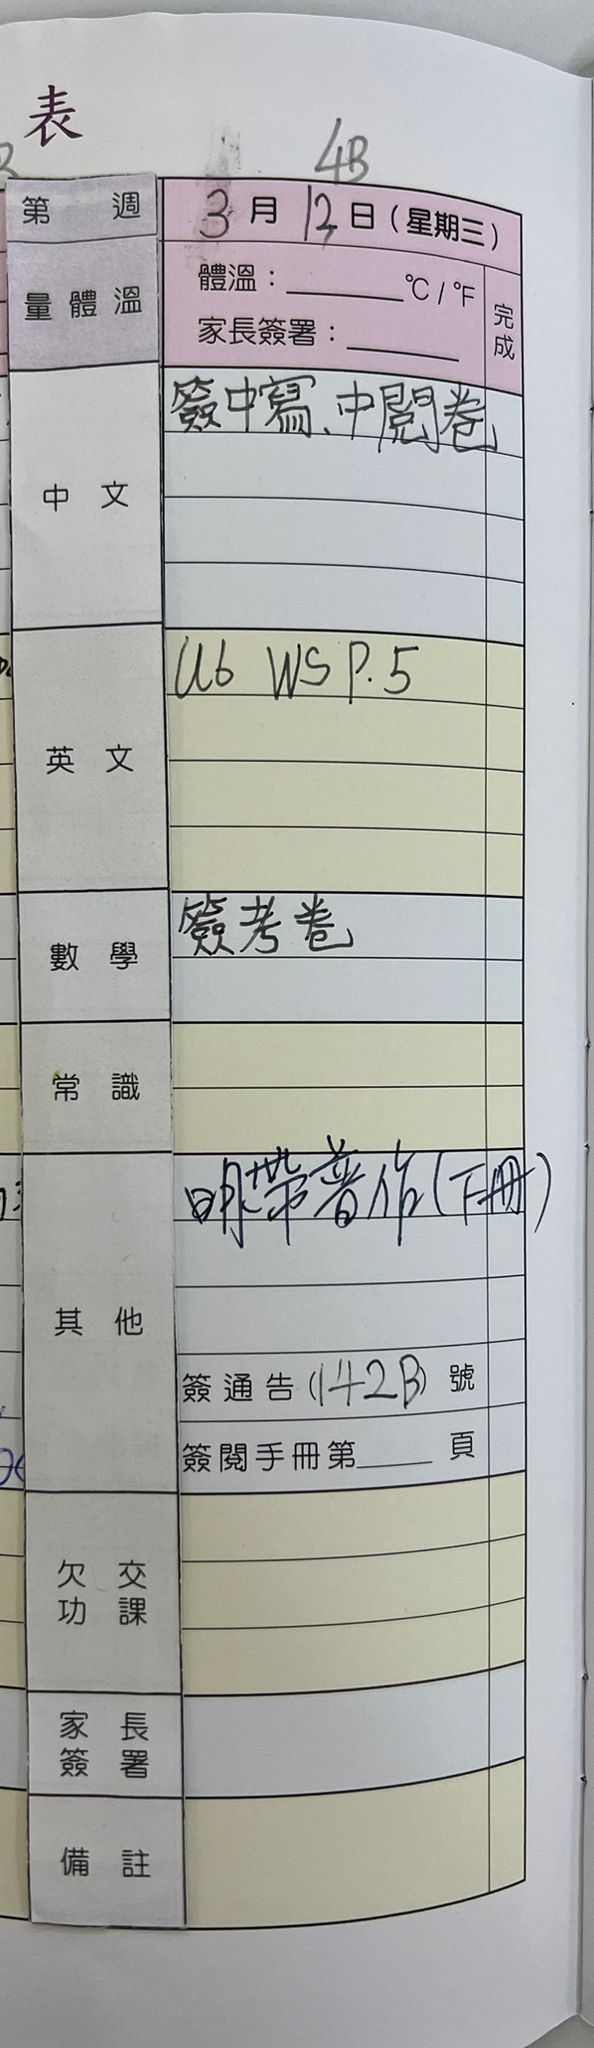 表
4B
第 週 3月12日(星期三)
量體溫
體溫：______°C / °F
家長簽署：______
完成
中文
簽中寫、中閱卷
英文
U6 WS P.5
數學
簽考卷
常識
其他
明帶著作(下冊)
簽通告(142B)號
簽閱手冊第____頁
欠交
功課
家長
簽署
備註